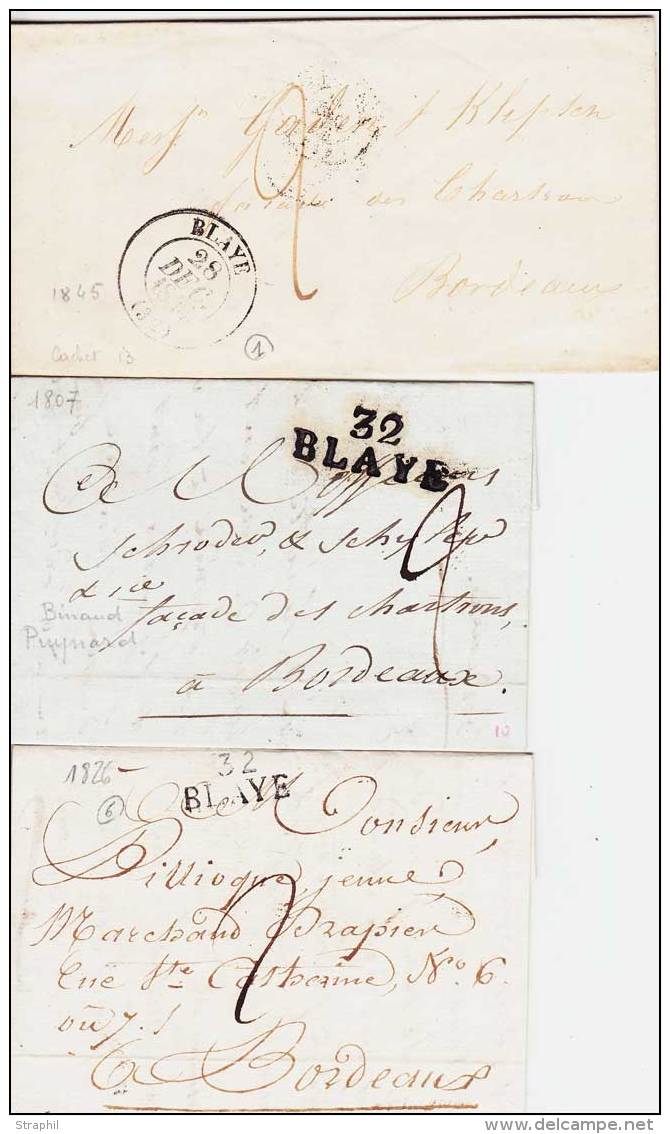 Klipsch
façade des Chartrons
Bordeaux
BLAYE
28
DEC
(32)
1845
Cachet 13
1
1807
32
BLAYE
A Messieurs
Schroder, & Schyler
& Cie
façade des chartrons,
à Bordeaux.
Binaud
Puynard
10
1826
32
BLAYE
6
A Monsieur
jeune
Marchand Drapier
Rue Ste Catherine, No. 6.
ou 7.
à Bordeaux
Straphil